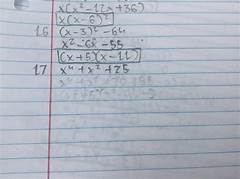 x(x²-12x+36)
x(x-6)²
16 (x-3)²-64
x²-6x-55
(x+5)(x-11)
17 x⁴+x²+25